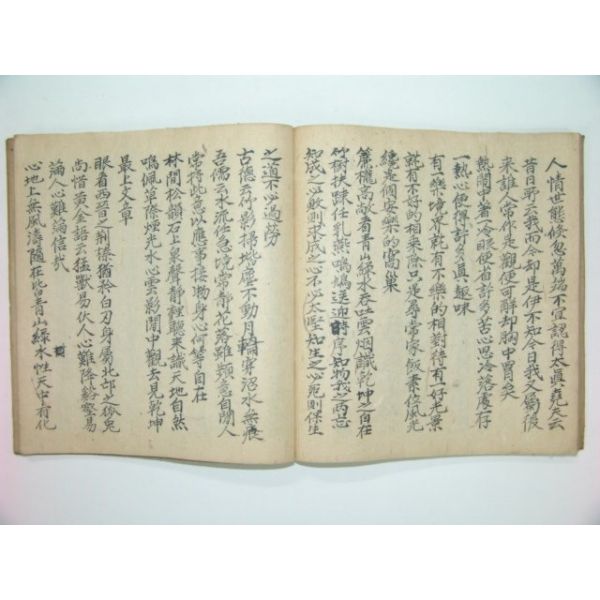 人情世態倏忽萬端不宜認得太眞堯夫云
昔日所云我而今却是伊不知今日我又屬後
来誰人常作是觀便可解却胸中罥矣
熱閙中着一冷眼便省許多苦心思冷落處存
一熱心便得許多眞趣味
有一樂境界就有不樂的相對待有一好光景
就有不好的相乘除只是尋常家飯素位風光
纔是個安樂的窩巢
簾櫳高敞看青山綠水呑吐雲烟識乾坤之自在
竹樹扶踈任乳燕鳴鳩送迎時序知物我之兩忘
知成之必敗則求成之心不必太堅知生之必死則保生
之道不必過勞
古德云竹影掃堦塵不動月輪穿沼水無痕
吾儒云水流任急境常靜花落雖頻意自閒人
常持此意以應事接物身心何等自在
林間松韻石上泉聲靜裡聽来識天地自然
鳴佩草際煙光水心雲影閒中觀去見乾坤
最上文章
眼看西晉之荊榛猶矜白刃身屬北邙之狐兔
尚惜黃金語云猛獸易伏人心難降谿壑易
滿人心難滿信哉
心地上無風濤隨在皆青山綠水性天中有化